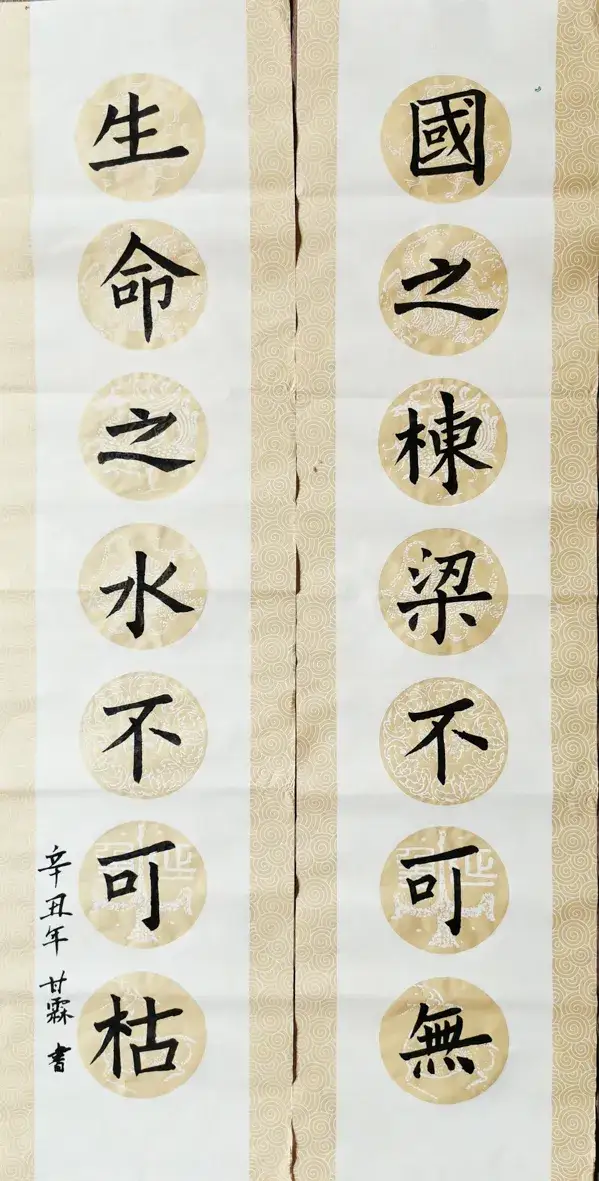 國之棟梁不可無
生命之水不可枯
辛丑年 甘霖 書